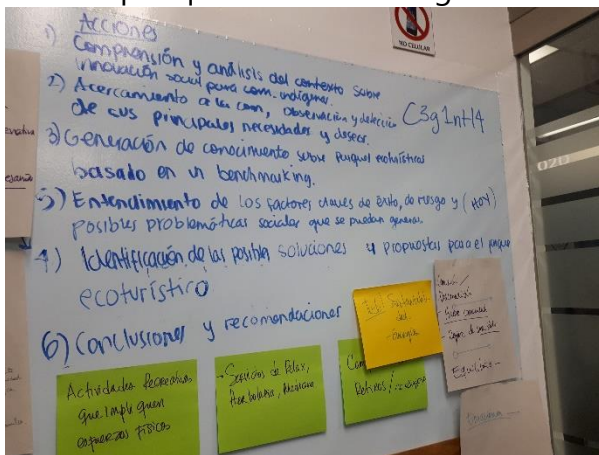 Acciones
1) Comprensión y análisis del contexto sobre
innovación social para com. indígenas.
2) Acercamiento a las com, observación y detección
de sus principales necesidades y deseos.
C3g1nt14
3) Generación de conocimiento sobre parques ecoturísticos
basado en un benchmarking.
5) Entendimiento de los factores claves de éxito, de riesgo y (HOY)
posibles problemáticas sociales que se puedan generar.
4) Identificación de las posibles soluciones y propuestas para el parque
ecoturístico
6) Conclusiones y recomendaciones
Actividades Recreativas
que impliquen
esfuerzos físicos
- Servicios de Relax,
Herbolaria, Medicina
Com
Retiros /
del
Sobre
Equilibrio -
NO CELULAR
020